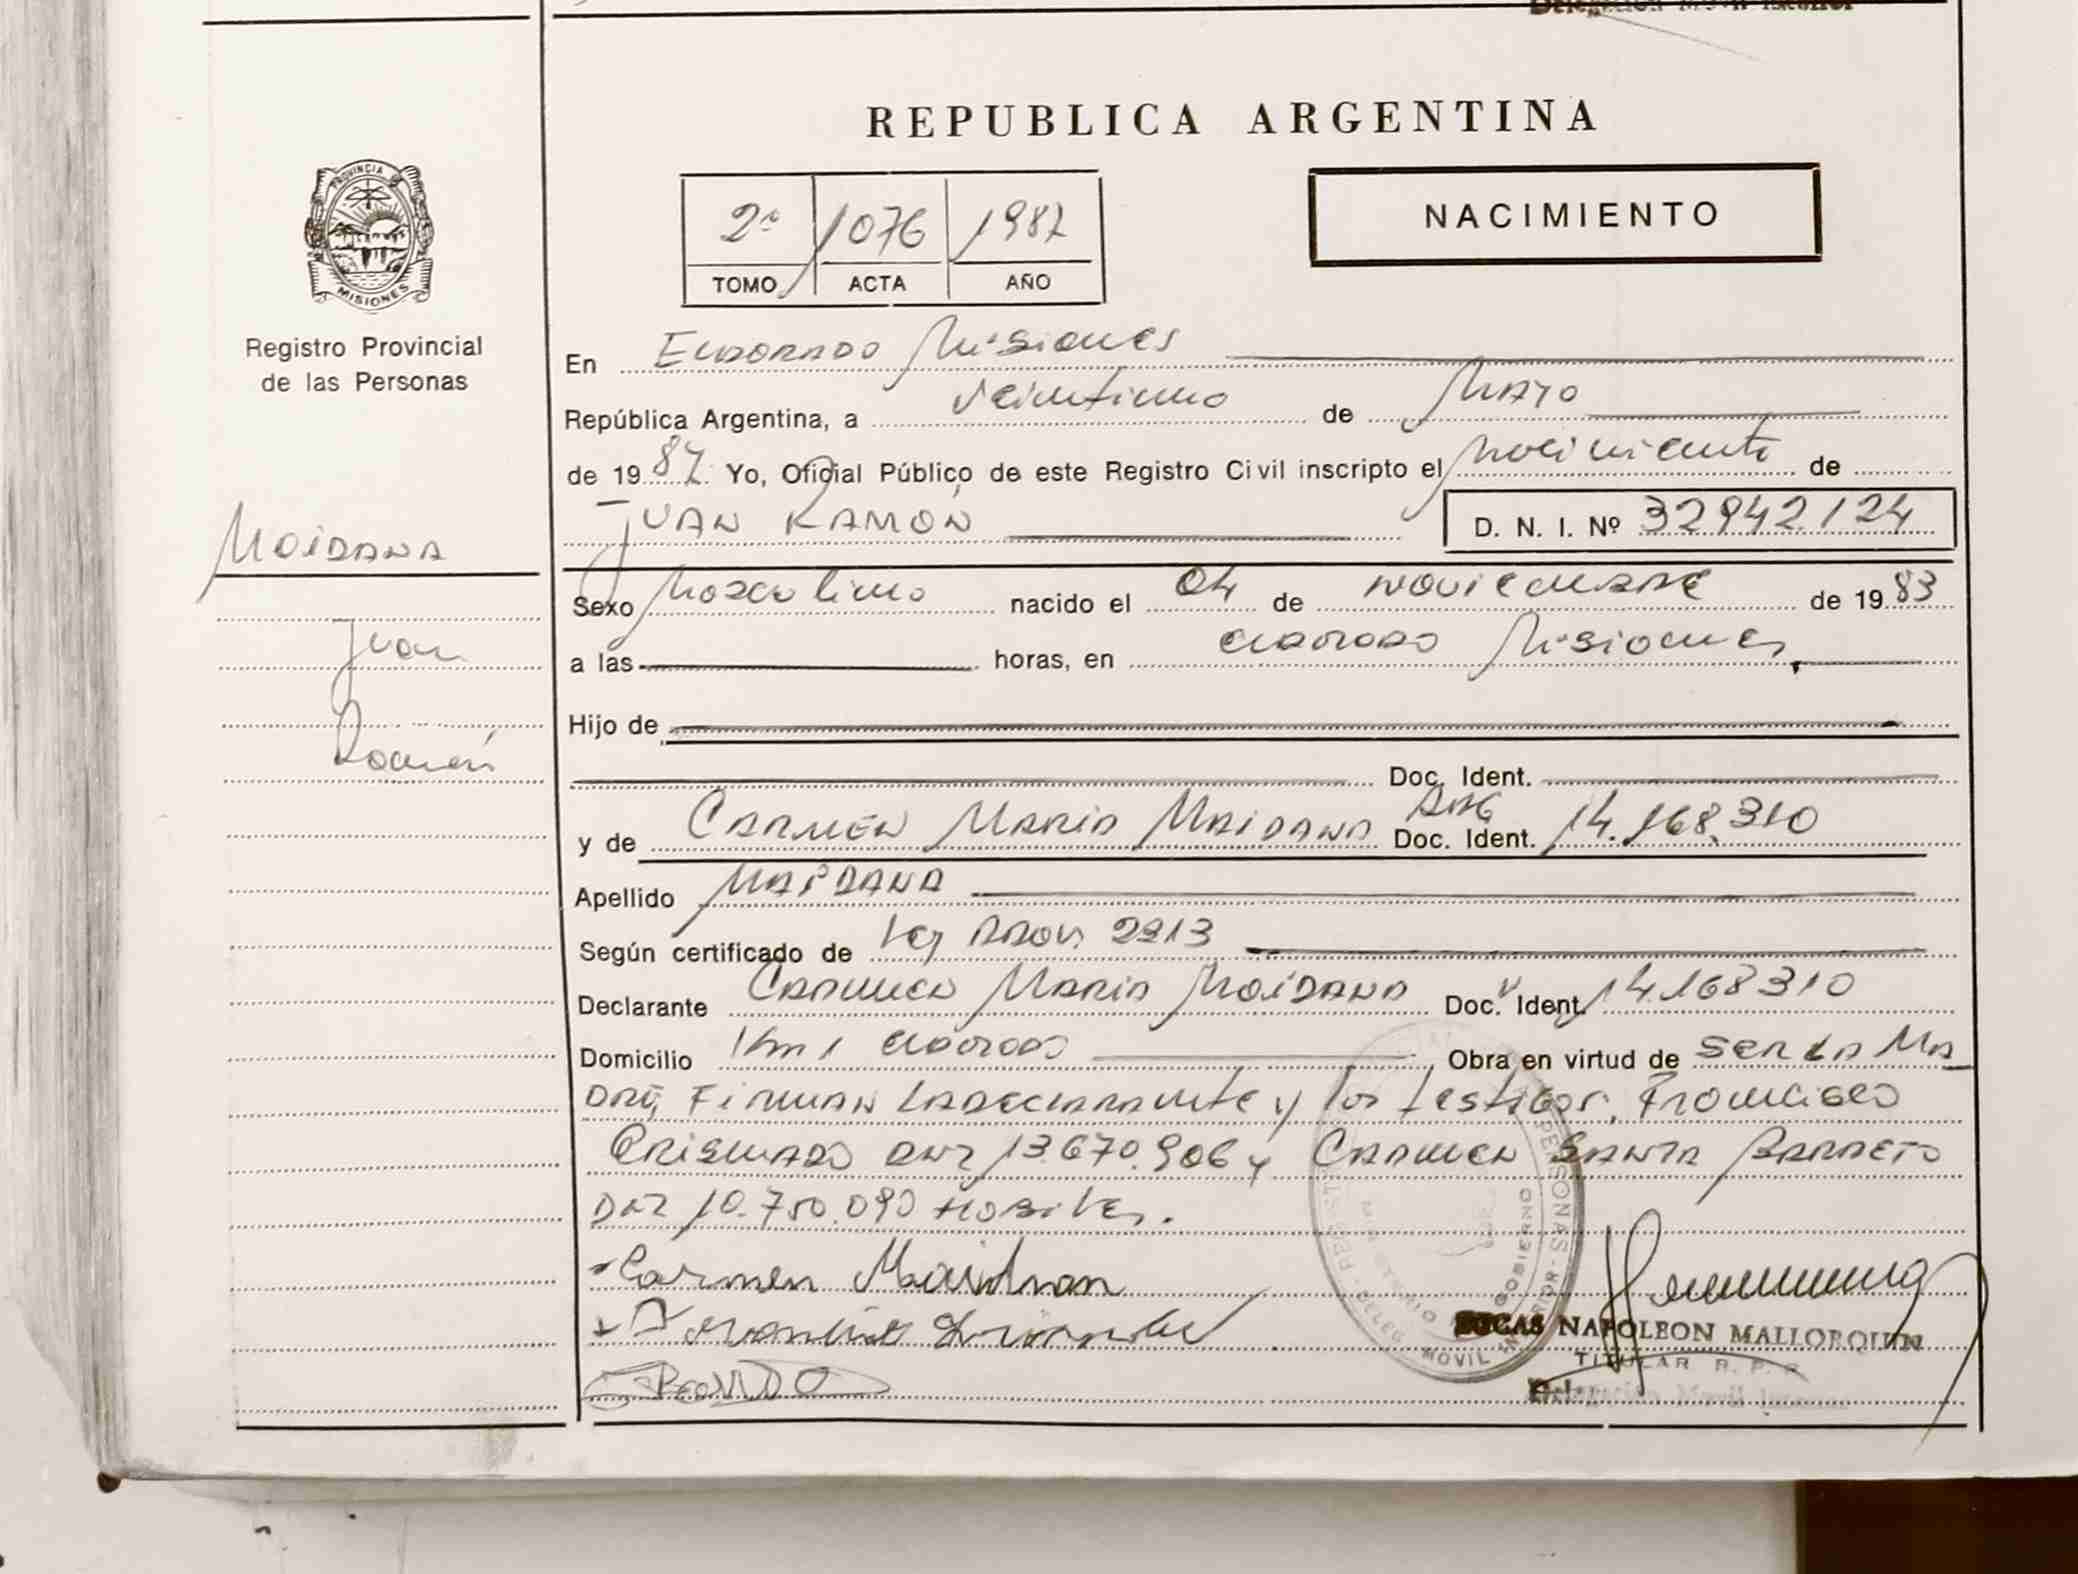 REPUBLICA ARGENTINA
PROVINCIA DE
MISIONES
Registro Provincial
de las Personas
2º 1076 1987
TOMO ACTA AÑO
NACIMIENTO
En Eldorado Misiones
República Argentina, a veintiuno de Mayo
de 1987. Yo, Oficial Público de este Registro Civil inscripto el nacimiento de
JUAN RAMÓN
D. N. I. Nº 32942124
Maidana
Juan
Ramón
Sexo Masculino nacido el 04 de noviembre de 1983
a las horas, en eldorado Misiones
Hijo de
Doc. Ident.
y de Carmen Maria Maidana Doc. Ident. 14.168.310
Apellido Maidana
Según certificado de Ley 2213
Declarante Carmen Maria Maidana Doc. Ident. 14.168310
Domicilio Km 1 eldorado Obra en virtud de ser la ma
dre, Firman la declarante y los testigos,
Crismado DNI 13.670.906 y Carmen Santa Barreto
DNI 10.750.090 Habiles.
Carmen Maidana
LUCAS NAPOLEON MALLORQUIN
TITULAR R. P. P.